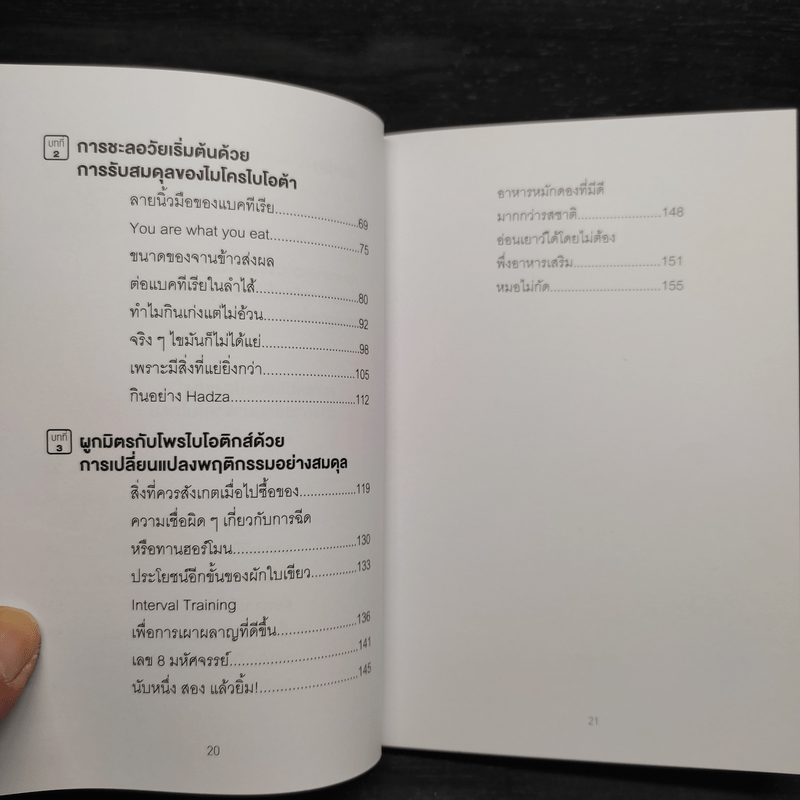 บทที่ 2 การชะลอวัยเริ่มต้นด้วย
การรับสมดุลของไมโครไบโอต้า
ลายนิ้วมือของแบคทีเรีย....................69
You are what you eat....................75
ขนาดของจานข้าวส่งผล
ต่อแบคทีเรียในลำไส้....................80
ทำไมกินเก่งแต่ไม่อ้วน....................92
จริง ๆ ไขมันก็ไม่ได้แย่....................98
เพราะมีสิ่งที่แย่ยิ่งกว่า....................105
กินอย่าง Hadza....................112
บทที่ 3 ผูกมิตรกับโพรไบโอติกส์ด้วย
การเปลี่ยนแปลงพฤติกรรมอย่างสมดุล
สิ่งที่ควรสังเกตเมื่อไปซื้อของ.................119
ความเชื่อผิด ๆ เกี่ยวกับการฉีด
หรือทานฮอร์โมน....................130
ประโยชน์อีกขั้นของผักใบเขียว.............133
Interval Training
เพื่อการเผาผลาญที่ดีขึ้น....................136
เลข 8 มหัศจรรย์....................141
นับหนึ่ง สอง แล้วยิ้ม!....................145
20
อาหารหมักดองที่มีดี
มากกว่ารสชาติ....................148
อ่อนเยาว์ได้โดยไม่ต้อง
พึ่งอาหารเสริม....................151
หมอไม่กัด....................155
21